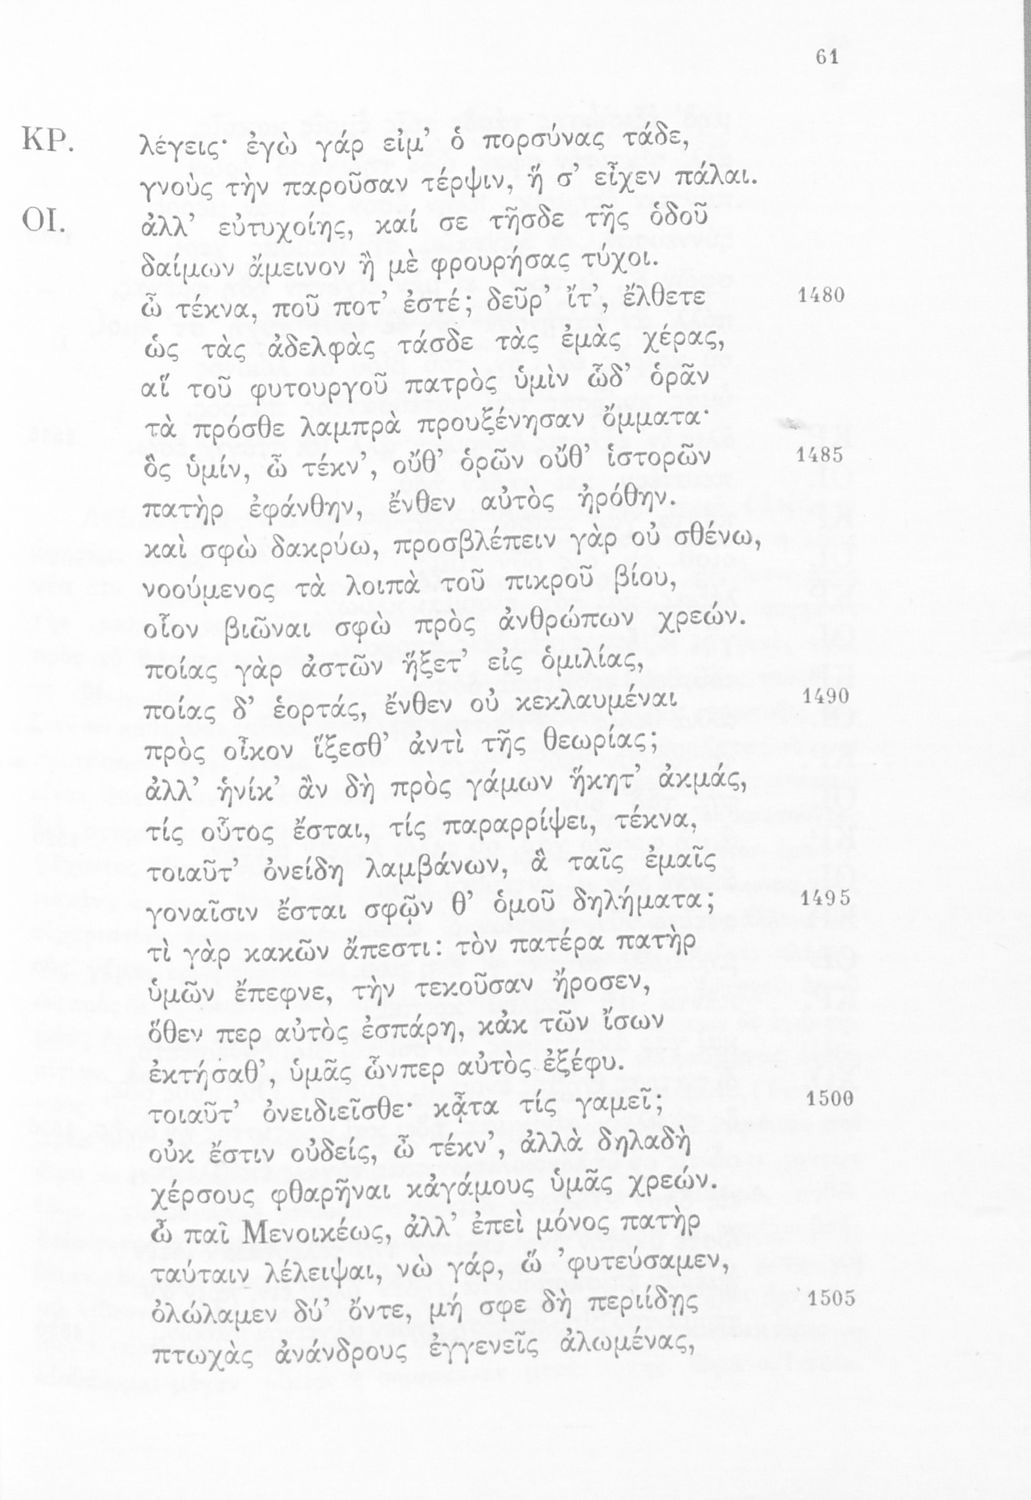 61
ΚΡ. λέγεις· ἐγὼ γάρ εἰμ’ ὁ πορσύνας τάδε,
γνοὺς τὴν παροῦσαν τέρψιν, ἥ σ’ εἶχεν πάλαι.
ΟΙ. ἀλλ’ εὐτυχοίης, καί σε τῆσδε τῆς ὁδοῦ
δαίμων ἄμεινον ἢ μὲ φρουρήσας τύχοι.
ὦ τέκνα, ποῦ ποτ’ ἐστέ; δεῦρ’ ἴτ’, ἔλθετε 1480
ὡς τὰς ἀδελφὰς τάσδε τὰς ἐμὰς χέρας,
αἳ τοῦ φυτουργοῦ πατρὸς ὑμὶν ὧδ’ ὁρᾶν
τὰ πρόσθε λαμπρὰ προυξένησαν ὄμματα·
ὃς ὑμίν, ὦ τέκν’, οὔθ’ ὁρῶν οὔθ’ ἱστορῶν 1485
πατὴρ ἐφάνθην, ἔνθεν αὐτὸς ἠρόθην.
καὶ σφὼ δακρύω, προσβλέπειν γὰρ οὐ σθένω,
νοούμενος τὰ λοιπὰ τοῦ πικροῦ βίου,
οἷον βιῶναι σφὼ πρὸς ἀνθρώπων χρεών.
ποίας γὰρ ἀστῶν ἥξετ’ εἰς ὁμιλίας,
ποίας δ’ ἑορτάς, ἔνθεν οὐ κεκλαυμέναι 1490
πρὸς οἶκον ἵξεσθ’ ἀντὶ τῆς θεωρίας;
ἀλλ’ ἡνίκ’ ἂν δὴ πρὸς γάμων ἥκητ’ ἀκμάς,
τίς οὗτος ἔσται, τίς παραρρίψει, τέκνα,
τοιαῦτ’ ὀνείδη λαμβάνων, ἃ ταῖς ἐμαῖς
γοναῖσιν ἔσται σφῷν θ’ ὁμοῦ δηλήματα; 1495
τὶ γὰρ κακῶν ἄπεστι: τὸν πατέρα πατὴρ
ὑμῶν ἔπεφνε, τὴν τεκοῦσαν ἤροσεν,
ὅθεν περ αὐτὸς ἐσπάρη, κἀκ τῶν ἴσων
ἐκτήσαθ’, ὑμᾶς ὧνπερ αὐτὸς ἐξέφυ.
τοιαῦτ’ ὀνειδιεῖσθε· κᾆτα τίς γαμεῖ; 1500
οὐκ ἔστιν οὐδείς, ὦ τέκν’, ἀλλὰ δηλαδὴ
χέρσους φθαρῆναι κἀγάμους ὑμᾶς χρεών.
ὦ παῖ Μενοικέως, ἀλλ’ ἐπεὶ μόνος πατὴρ
ταύταιν λέλειψαι, νὼ γάρ, ὣ ’φυτεύσαμεν,
ὀλώλαμεν δύ’ ὄντε, μή σφε δὴ περιίδῃς 1505
πτωχὰς ἀνάνδρους ἐγγενεῖς ἀλωμένας,